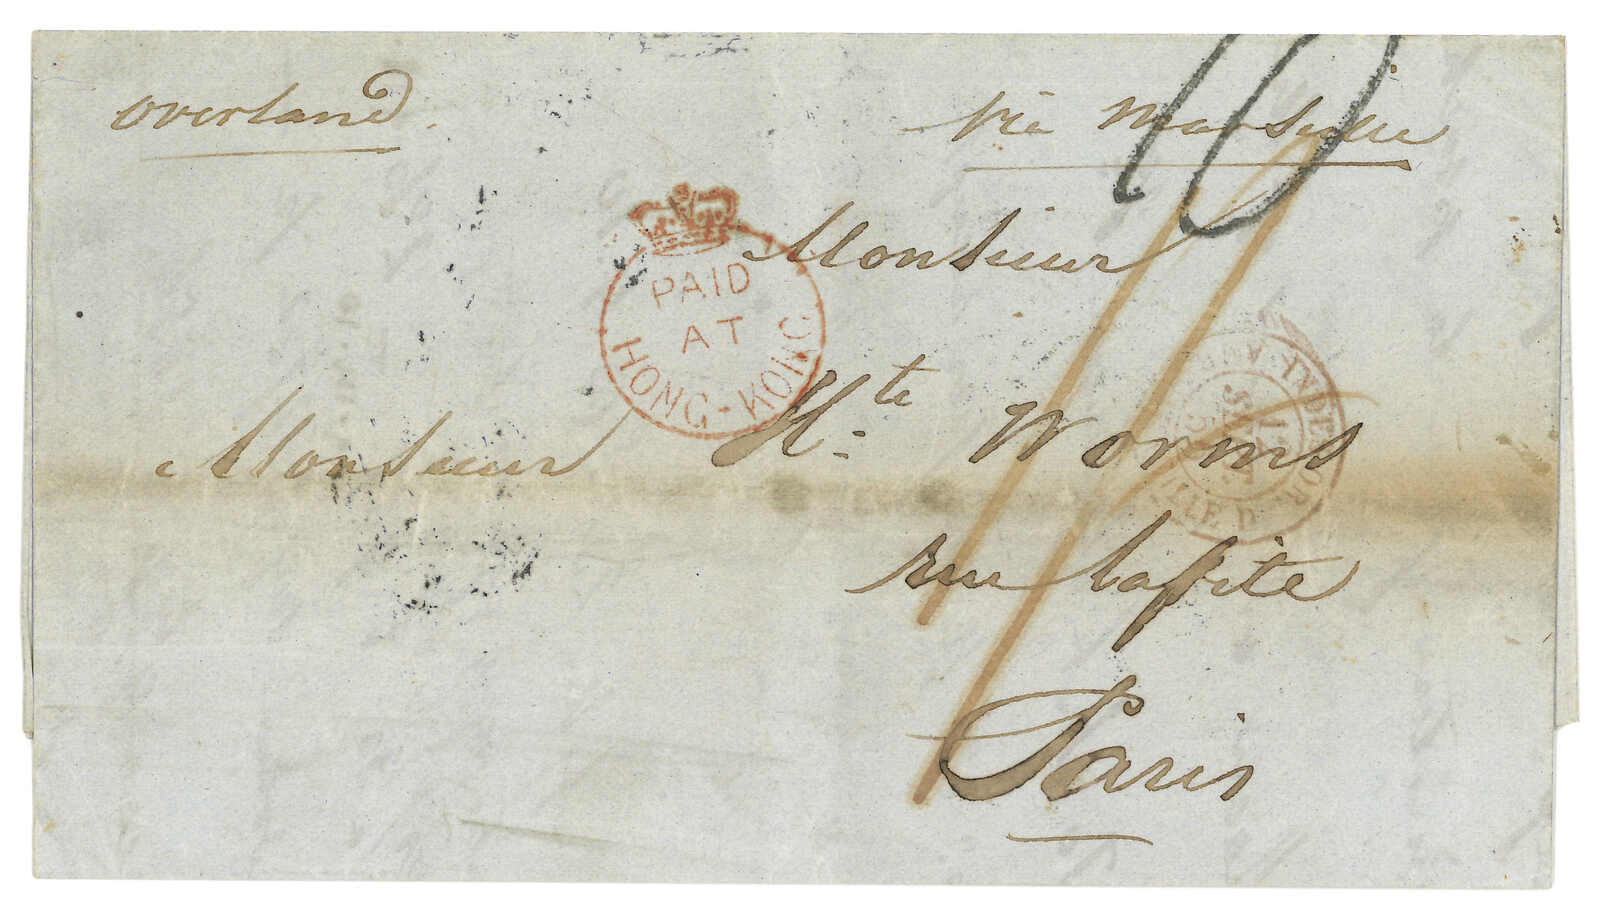 overland
via Marseille
10
PAID
AT
HONG-KONG
Monsieur
Monsieur Hte Worms
rue Lafite
Paris